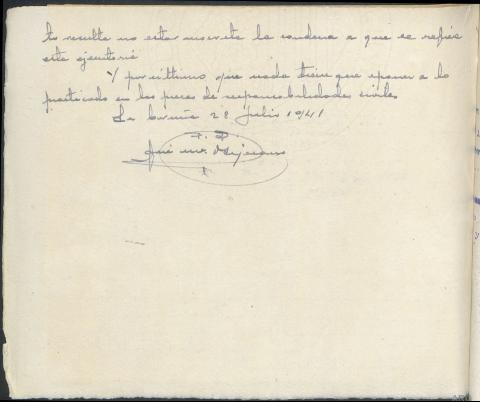 to resulta no estar inscrita la condena a que se refiere
esta ejecutoria
Y por último, que nada tiene que oponer a lo
practicado en las piezas de responsabilidades civiles
La Coruña 28 Julio 1941
José